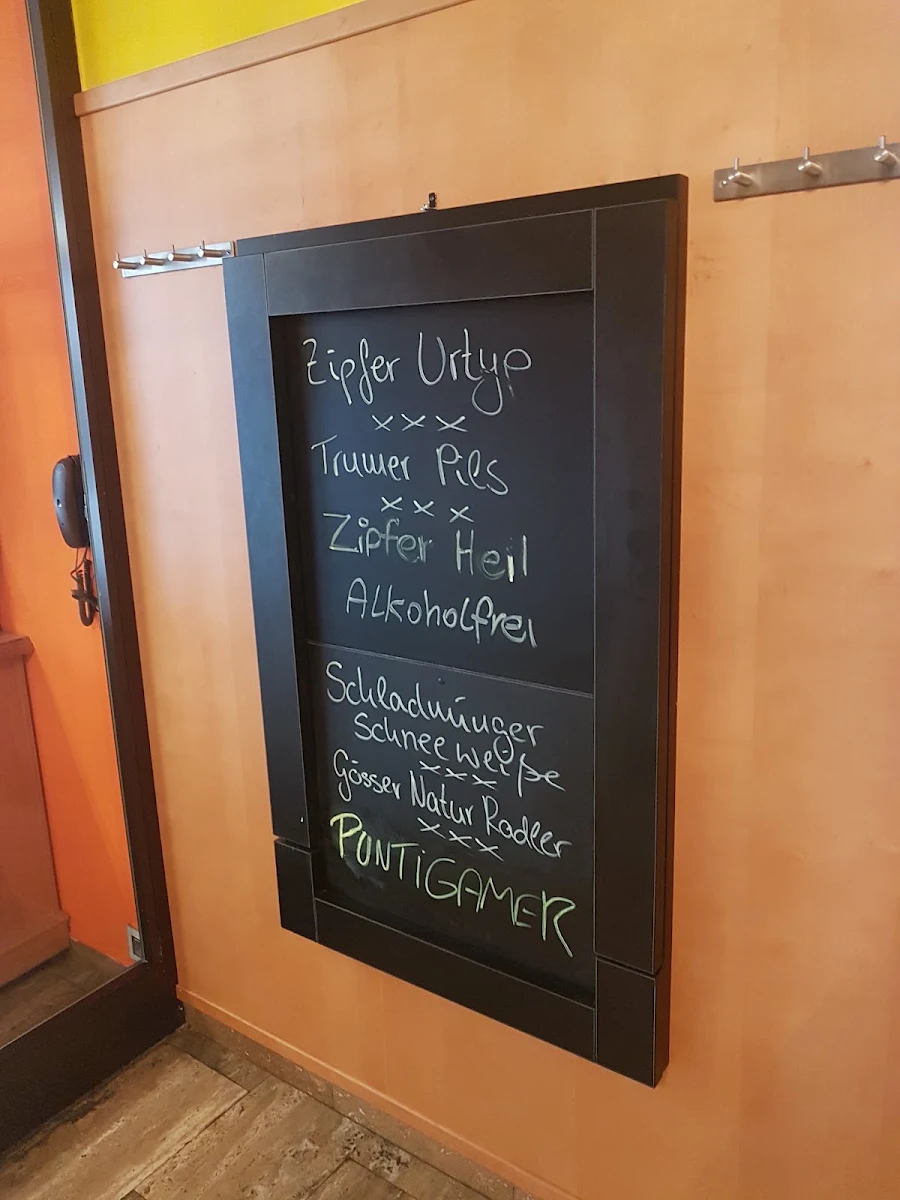 Zipfer Urtyp
xxx
Trumer Pils
xxx
Zipfer Hell
Alkoholfrei
Schladminger
Schneeweiße
xxx
Gösser Natur Radler
xxx
PUNTIGAMER